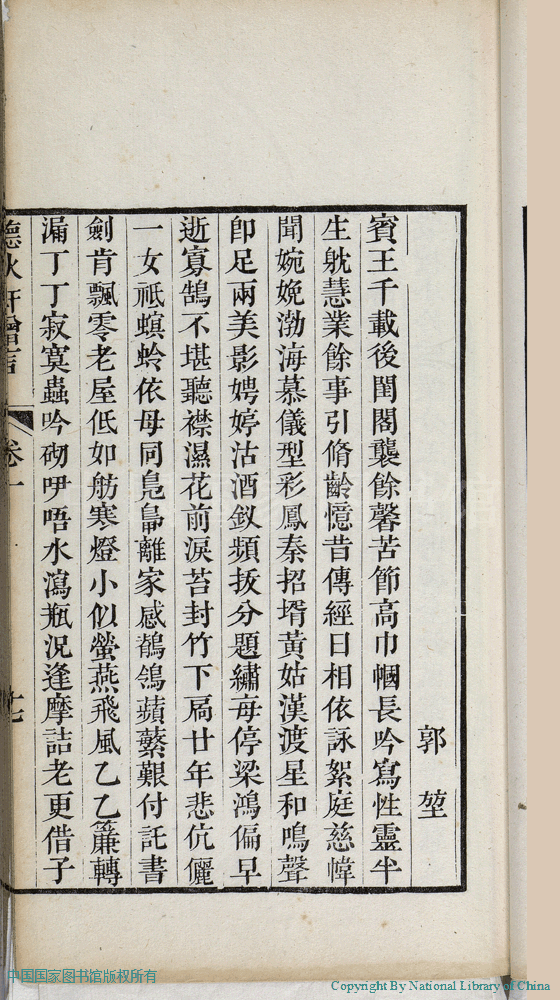 郭堃
賓王千載後閨閣襲餘馨苦節高巾幗長吟寫性靈半
生躭慧業餘事引脩齡憶昔傳經日相依詠絮庭慈幃
聞婉娩渤海慕儀型彩鳳秦招壻黃姑漢渡星和鳴聲
卽足兩美影娉婷沽酒釵頻拔分題繡每停梁鴻偏早
逝寡鵠不堪聽襟濕花前淚苔封竹下扃廿年悲伉儷
一女祇螟蛉依母同鳧
離家感鶺鴒蘋蘩艱付託書
劍肯飄零老屋低如舫寒燈小似螢燕飛風乙乙簾轉
漏丁丁寂寞蟲吟砌咿唔水瀉瓶況逢摩詰老更借子
卷一
中国国家图书馆版权所有
Copyright By National Library of China